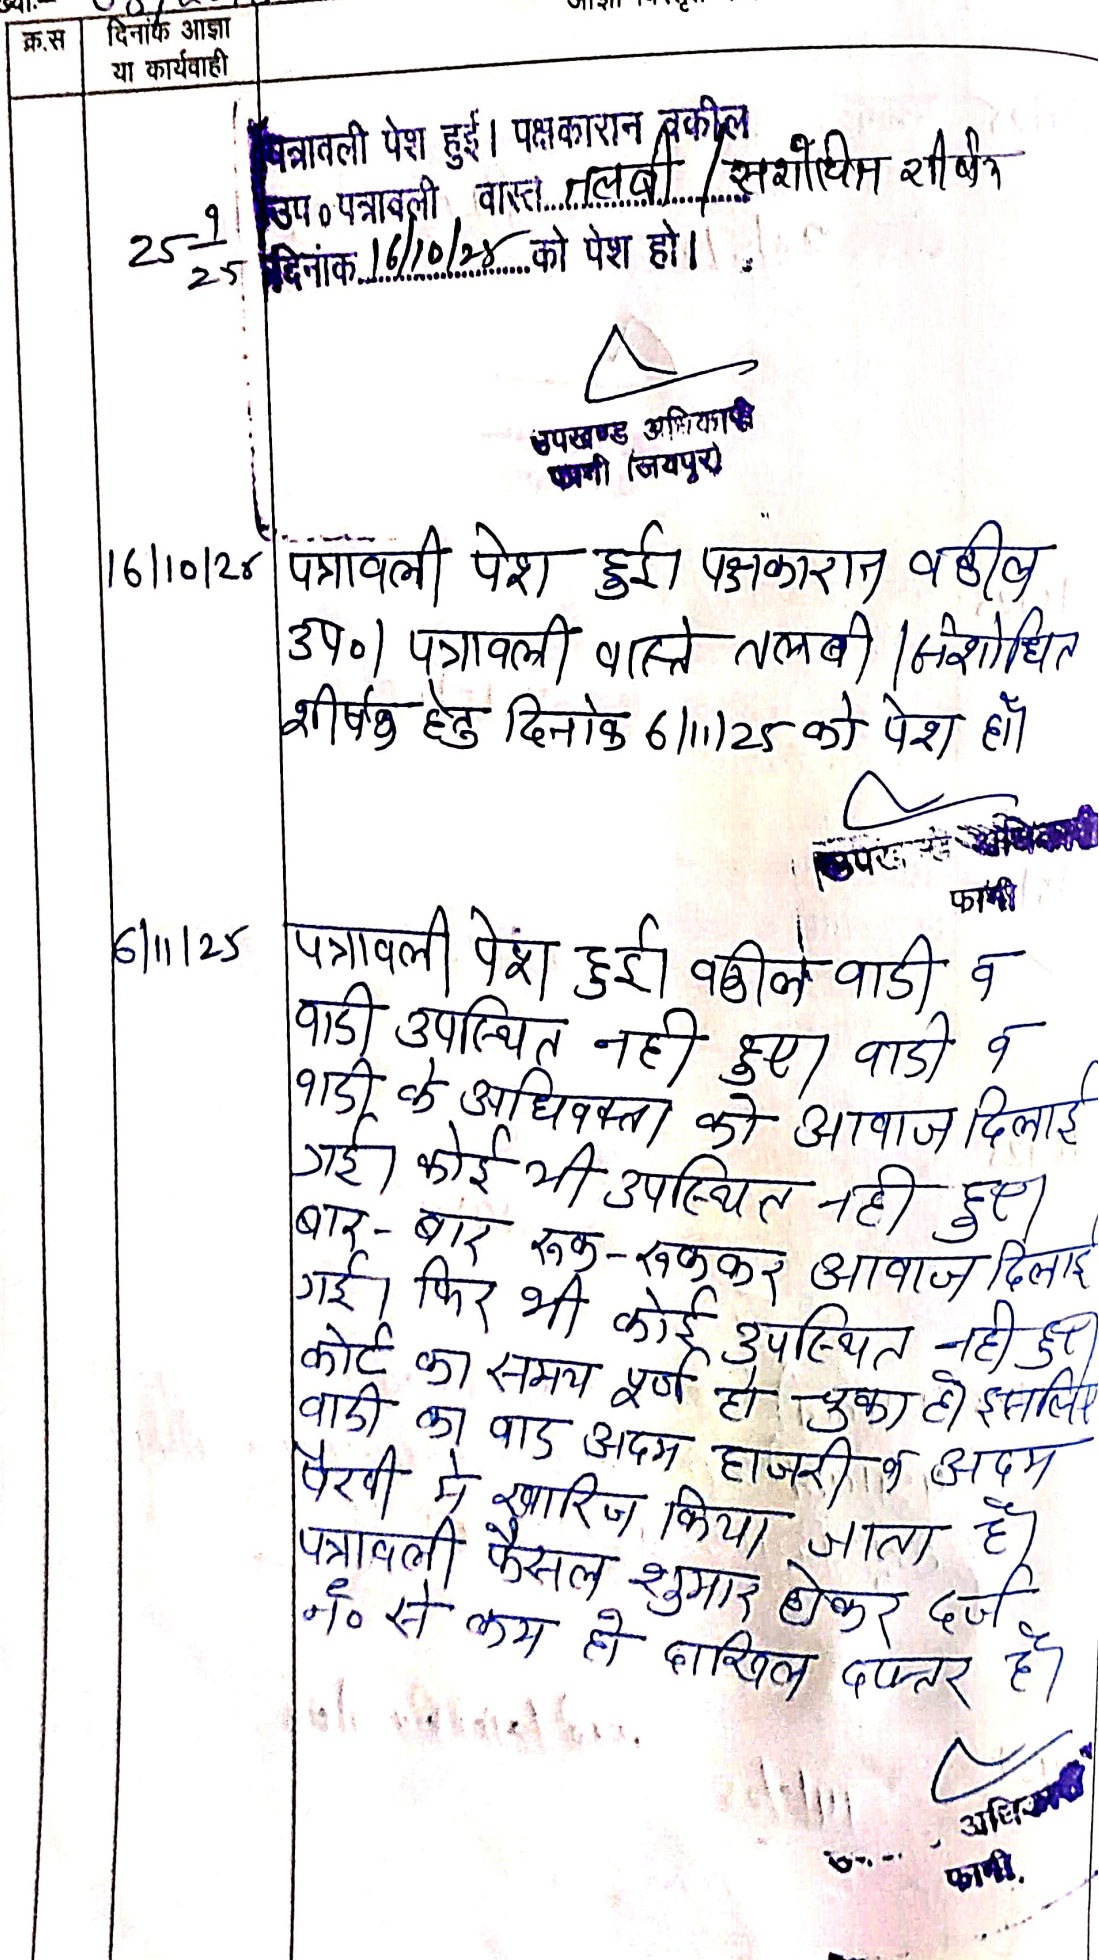 क्र.स
दिनांक आज्ञा
या कार्यवाही
पत्रावली पेश हुई। पक्षकारान वकील
उप० पत्रावली वास्ते तलबी / संशोधित शीर्षक
25 9/25
दिनांक 16/10/25 को पेश हो।
उपखण्ड अधिकारी
फागी (जयपुर)
16/10/25 पत्रावली पेश हुई। पक्षकारान वकील
उप०। पत्रावली वास्ते तलबी / संशोधित
शीर्षक हेतु दिनांक 6/11/25 को पेश हों।
उपखण्ड अधिकारी
फागी
6/11/25 पत्रावली पेश हुई। वकील वादी व
वादी उपस्थित नही हुए। वादी व
वादी के अधिवक्ता को आवाज दिलाई
गई। कोई भी उपस्थित नही हुए।
बार-बार रूक-रूककर आवाज दिलाई
गई। फिर भी कोई उपस्थित नही हुए।
कोर्ट का समय पूर्ण हो चुका है। इसलिए
वादी का वाद अदम हाजरी व अदम
पैरवी मे खारिज किया जाता है।
पत्रावली फैसल शुमार होकर दर्ज
नं० से कम हो दाखिल दफ्तर हों।
अधिकारी
फागी